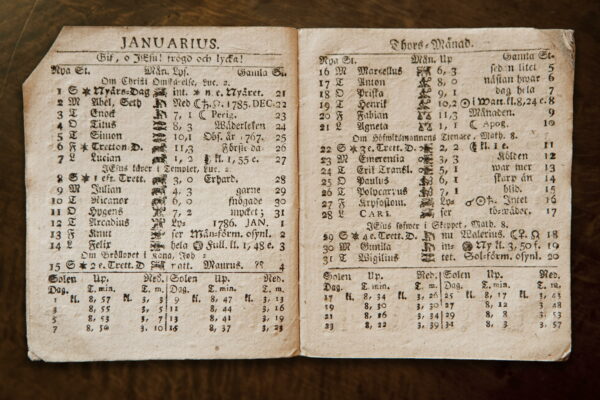 JANUARIUS.
Gif, o JEsu! trögd och lycka!
Nya St. Mån. Lps. Gamla St.
Om Christi Omskärelse, Luc. 2.
1 S Nyårs-Dag Nyåret. 21
2 M Abel, Seth Ned 1785. DEC. 22
3 T Enoch 7, 1 Perig. 23
4 O Titus 8, 3 Wäderleken 24
5 T Simon 10, 1 Obs. år 1767. 25
6 F Tretton D. 11, 3 Förste da- 26
7 L Lucian 1, 2 kl. 1, 55 e. 27
JEsus lärer i Templet, Luc. 2.
8 S 1 eft. Trett. 3, 0 Erhard. 28
9 M Julian 4, 3 garne 29
10 T Nicanor 6, 0 snögade 30
11 O Hyginus 7, 2 mycket; 31
12 T Arcadius Lps- 1786. JAN. 1
13 F Knut ser Mån-förm. osynl. 2
14 L Felix hela Full. kl. 1, 48 e. 3
Om Bröllopet i Kana, Joh. 2.
15 S 2 e. Trett. D. natt. Maurus. 4
Solen Up. Ned. Solen Up. Ned.
Dag. T. min. T. m. Dag. T. min. T. m.
1 kl. 8, 57 kl. 3, 3 9 kl. 8, 47 kl. 3, 13
3 8, 55 3, 5 11 8, 44 3, 16
5 8, 53 3, 7 13 8, 41 3, 19
7 8, 50 3, 10 15 8, 37 3, 23
Thors-Månad.
Nya St. Mån. Up Gamla St.
16 M Marcellus 6, 3 sedn litet 5
17 T Anton 8, 0 nästan hwar 6
18 O Prisca 9, 1 dag hela 7
19 T Henrik 10, 2 i Watt. kl. 8, 24 e. 8
20 F Fabian 11, 3 Månaden. 9
21 L Agneta 1, 1 Apog. 10
Om Höfwitsmannens Tienare, Math. 8.
22 S 3 e. Trett. D. 2, 2 kl. 1 e. 11
23 M Emerentia 3, Kölden 12
24 T Erik Transl. 5, 1 war mer 13
25 O Paulus 6, 1 skarp än 14
26 T Polycarpus 7, 1 blid. 15
27 F Krysostom. Lps- Intet 16
28 L CARL ser tö-wäder. 17
JEsus sofwer i Skeppet, Math. 8.
29 S 4 e. Trett. D. nu Valerius. 18
30 M Gunila in- Ny kl. 3, 50 f. 19
31 T Wigilius tet. Sol-förm. osynl. 20
Solen Up. Ned. Solen Up. Ned.
Dag. T. min. T. m. Dag. T. min. T. m.
17 kl. 8, 34 kl. 3, 26 25 kl. 8, 17 kl. 3, 43
19 8, 30 3, 30 27 8, 12 3, 48
21 8, 26 3, 34 29 8, 8 3, 53
23 8, 22 3, 39 31 8, 3 3, 57